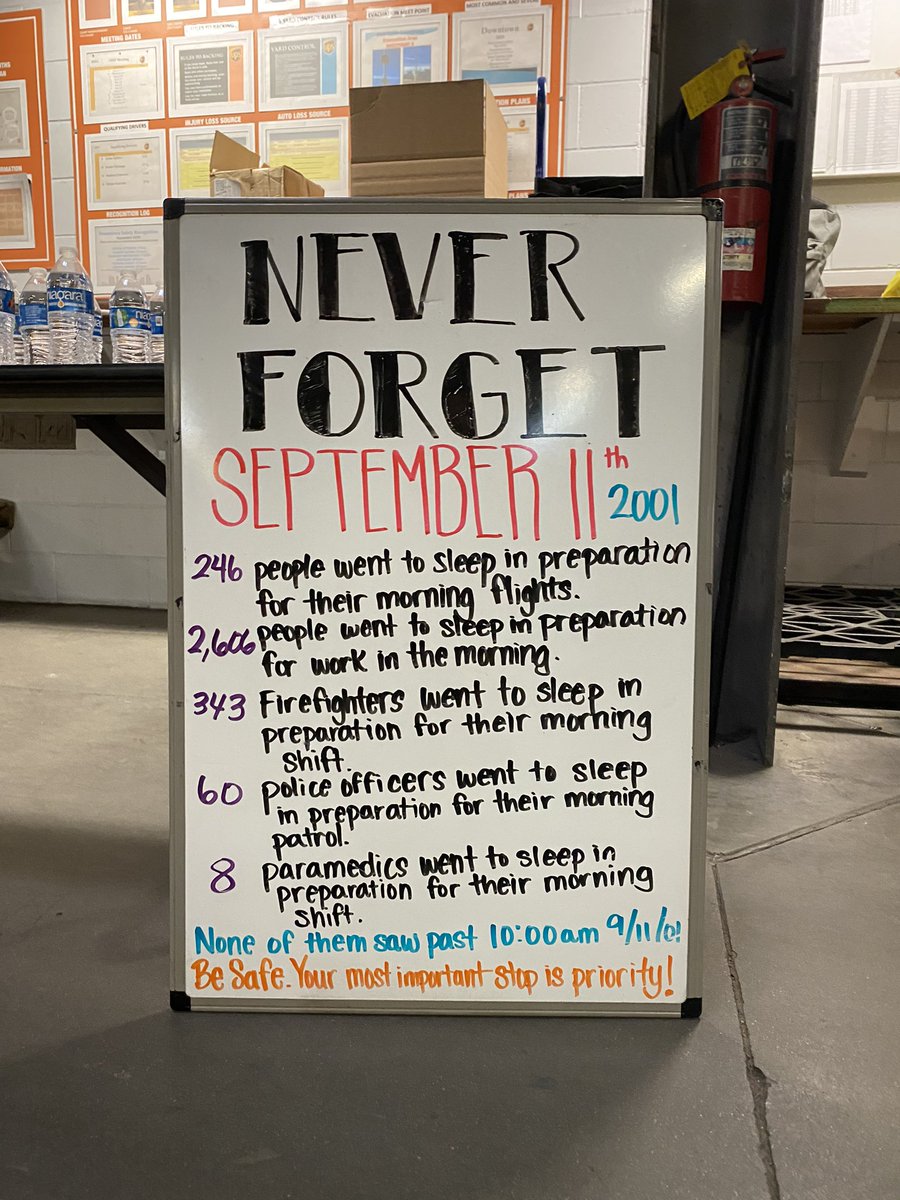 MEETING DATES
YARD CONTROL RULES
EVACUATION MEET POINT
MOST COMMON AND SEVERE
YARD CONTROL
Downtown
QUALIFYING DRIVERS
INJURY LOSS SOURCE
AUTO LOSS SOURCE
RECOGNITION LOG
niagara
NEVER
FORGET
SEPTEMBER 11th 2001
246 people went to sleep in preparation
for their morning flights.
2,606 people went to sleep in preparation
for work in the morning.
343 Firefighters went to sleep in
preparation for their morning
shift.
60 police officers went to sleep
in preparation for their morning
patrol.
8 paramedics went to sleep in
preparation for their morning
shift.
None of them saw past 10:00am 9/11/01!
Be Safe. Your most important stop is priority!